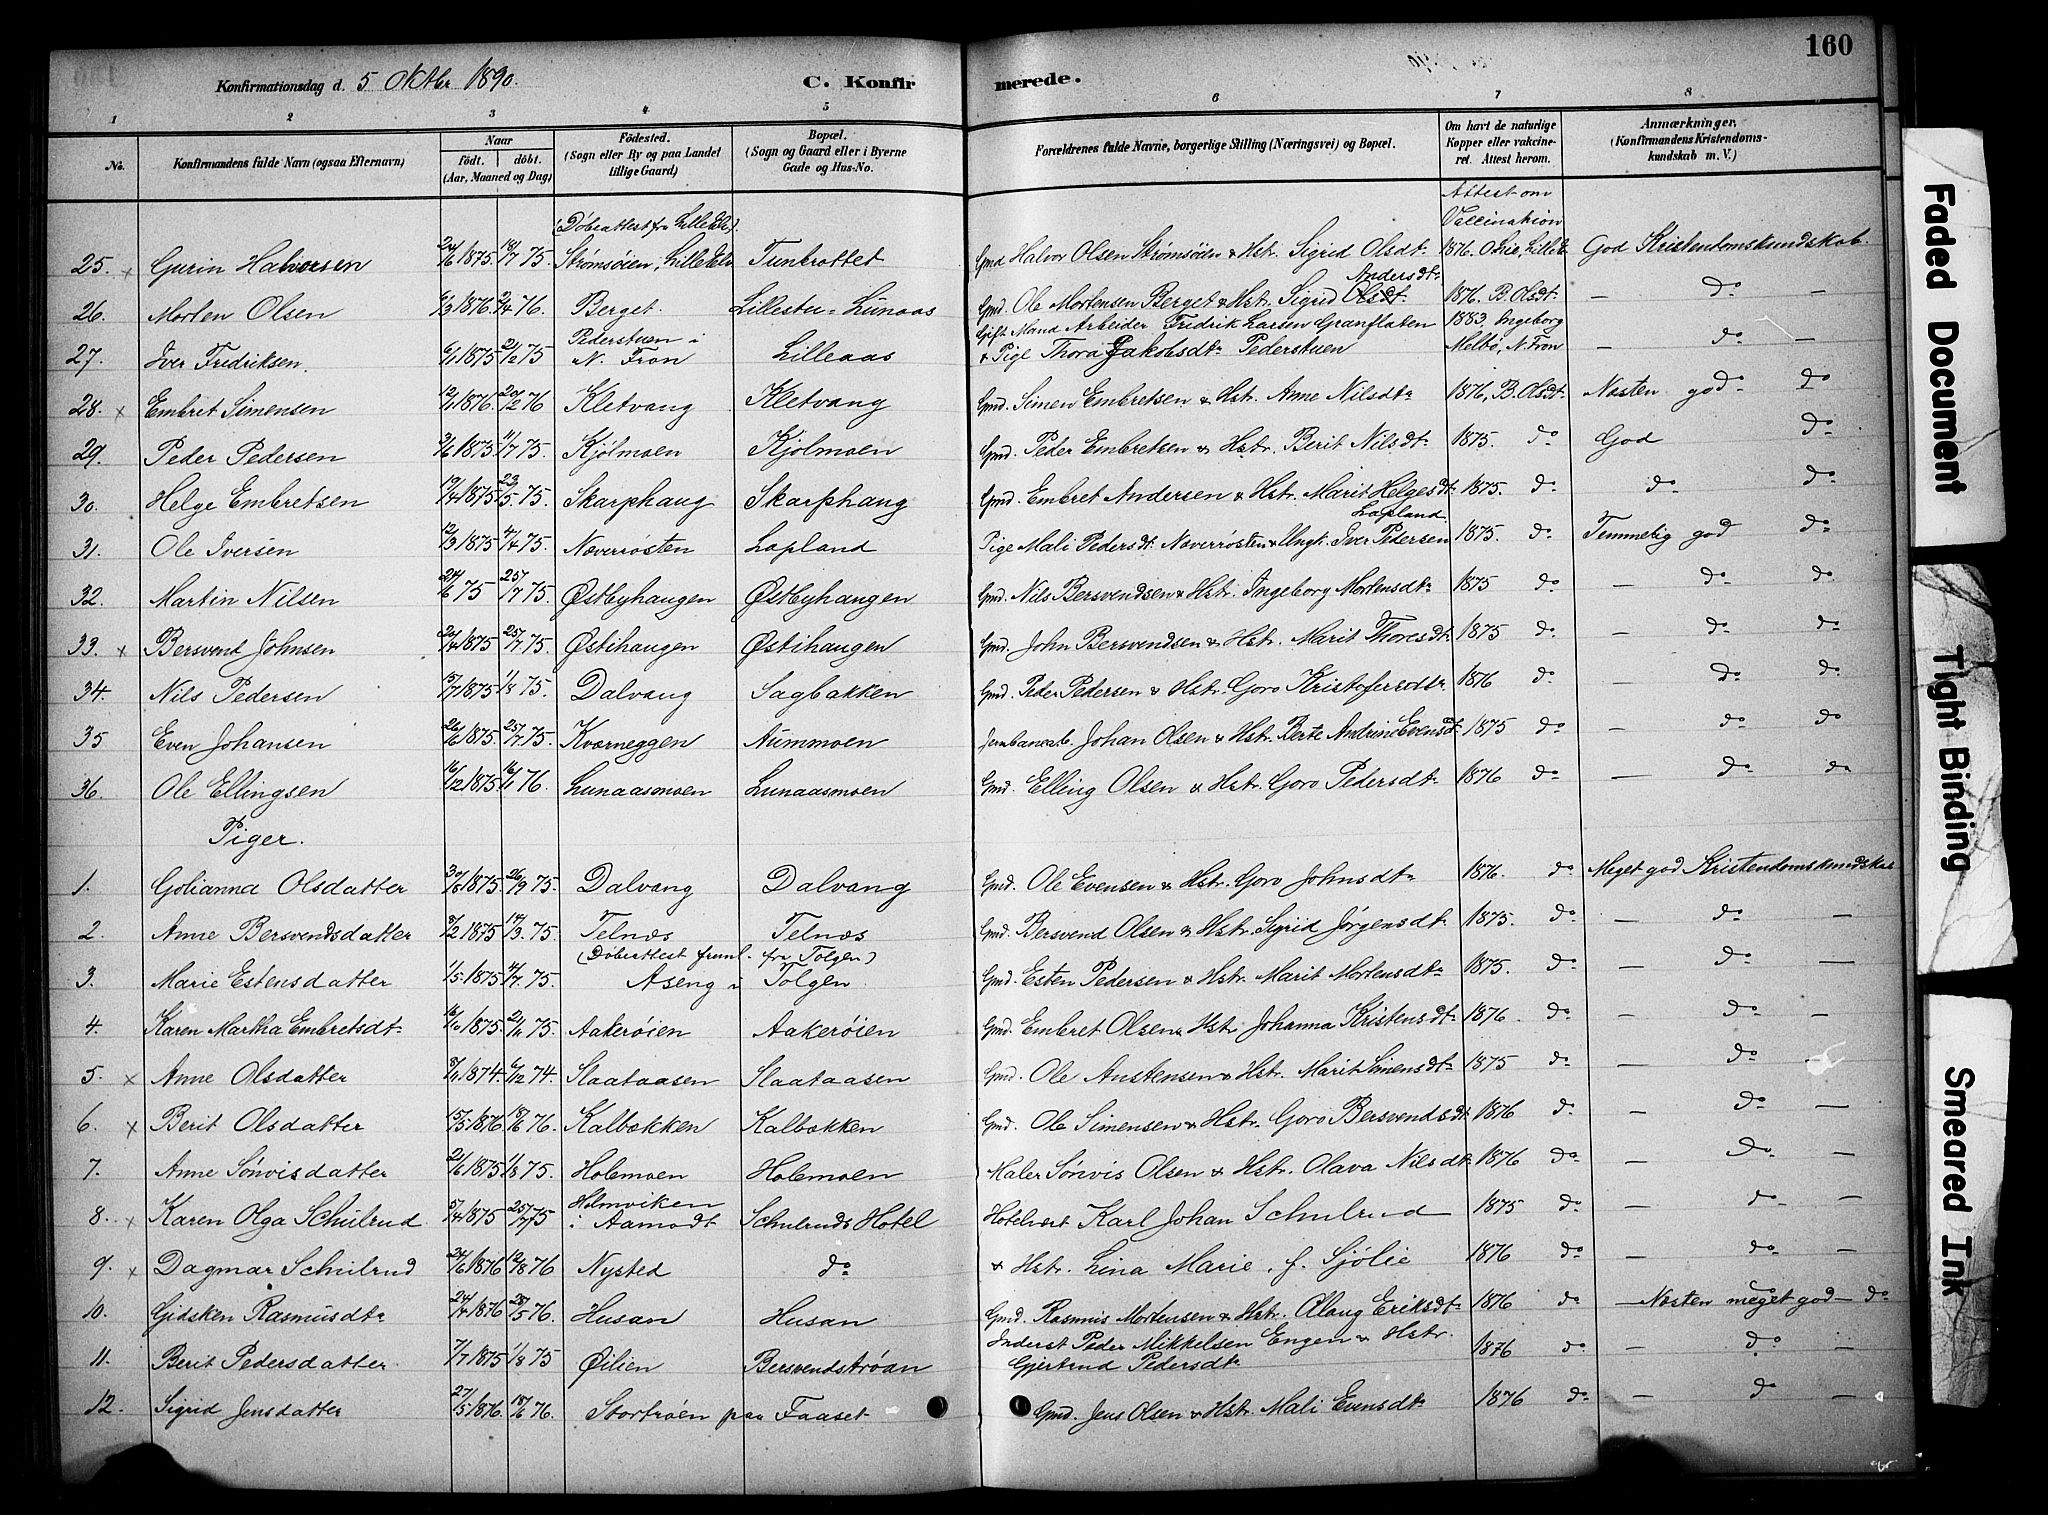 160
Konfirmationsdag d. 5 Oktbr 1890.
C. Konfirmerede.
1 2 3 4 5 6 7 8
No. Konfirmandens fulde Navn (ogsaa Efternavn) Naar født. døbt. (Aar, Maaned og Dag) Fødested. (Sogn eller By og paa Landet tillige Gaard) Bopæl. (Sogn og Gaard eller i Byerne Gade og Hus-No. Forældrenes fulde Navne, borgerlige Stilling (Næringsvei) og Bopæl. Om havt de naturlige Kopper eller vakcineret. Attest herom. Anmærkninger. (Konfirmandens Kristendomskundskab m. V.)
(Døbeattest fra Lilleelv). Attest om Vaccination
25. x Gurin Halvorsen 24/6 1875. 18/7 75. Strømsøien, Lilleelv Tunbrottet Gmd Halvor Olsen Strømsøien & Hstr. Sigrid Olsdtr 1876. God Kristendomskundskab.
26. Morten Olsen 1876. 2/4 76. Berget. Lillestu-Lunaas Gmd. Ole Mortensen Berget & Hstr. Sigrid Andersdtr 1876. B. Olsdtr. — do —
27. Iver Fredriksen. 6/1 1875 21/2 75 Pederstuen i N. Fron Lilleaas Gift Mand Arbeider Fredrik Larsen Granflaten & Pige Thora Jakobsdtr Pederstuen 1883. Ingeborg Melbø, N. Fron — do —
28. x Embret Simensen 12/1 1876. 20/2 76 Kletvang Kletvang Gmd. Simen Embretsen & Hstr. Anne Nilsdtr 1876, B. Olsdtr. Næsten god do
29. Peder Pedersen 1875. 11/7 75. Kjølmoen Kjølmoen Gmd. Peder Embretsen & Hstr. Berit Nilsdtr. 1875. do God do
30. Helge Embretsen 19/4 1875 23/5. 75. Skarphaug Skarphaug Gmd. Embret Andersen & Hstr. Marit Helgesdtr 1875. do do do
31. Ole Iversen 12/3 1875 4/4 75. Næverrøsten Lapland Pige Mali Pedersdtr. Næverrøsten & Ungk. Iver Pedersen Lapland 1875. do Temmelig god do
32. Martin Nilsen 24/6 75 25/7 75. Østbyhaugen Østbyhaugen Gmd. Nils Bersvendsen & Hstr. Ingeborg Mortensdtr 1875 do — do do
33. x Bersvend Johnsen 20/4 1875 25/7. 75. Østihaugen Østihaugen Gmd. John Bersvendsen & Hstr. Marit Thoresdtr. 1875 do — do do
34. Nils Pedersen 1875 1/8 75. Dalvang Sagbakken Gmd. Peder Pedersen & Hstr. Goro Kristofersdtr 1876 do — do do
35 Even Johansen 26/6 1875. 25/7. 75. Kværneggen Aummoen Jernbanearb. Johan Olsen & Hstr. Berte Andrine Evensdtr 1875 do — do do
36. Ole Ellingsen 16/12 1875 16/1 76. Lunaasmoen Lunaasmoen Gmd. Elling Olsen & Hstr. Goro Pedersdtr 1876 do — do do
Piger.
1. Golianna Olsdatter 30/8 1875 26/9 75. Dalvang Dalvang Gmd. Ole Evensen & Hstr. Goro Johnsdtr 1876. do Meget god Kristendomskundskab
2. Anne Bersvendsdatter 8/2 1875 14/3. 75. Telnæs Telnæs Gmd. Bersvend Olsen & Hstr. Sigrid Jørgensdtr 1875. do — do —
(Døbeattest freml. fra Tolgen)
3. Marie Estensdatter 1/5 1875 4/7. 75. Aseng i Tolgen. Gmd. Esten Pedersen & Hstr. Marit Mortensdtr 1875. do — do —
4. Karen Martha Embretsdtr 16/10 1875 21/11 75. Aakerøien Aakerøien Gmd. Embret Olsen & Hstr. Johanna Kristensdtr 1876. do — do —
5. x Anne Olsdatter 8/11 1874. 6/12 74. Slaataasen Slaataasen Gmd. Ole Austensen & Hstr. Marit Simensdtr 1875 do — do —
6. x Berit Olsdatter 15/5 1876 18/6 76. Kalbækken Kalbækken Gmd. Ole Simensen & Hstr. Goro Bersvendsdtr 1876 do — do —
7. Anne Sønvisdatter 21/6 1875 1/8 75. Holemoen Holemoen Maler Sønvis Olsen & Hstr. Olava Nilsdtr 1876 do — do —
8. x Karen Olga Schulrud 5/4 1875 25/7 75 Holmviken i Aamodt Schulruds Hotel Hotelvært Karl Johan Schulrud 1875 do — do —
9. x Dagmar Schulrud 24/6 1876 12/8 76 Nysted do & Hstr. Lina Marie, f. Sjølie 1876 do — do —
10. Gidsken Rasmusdtr 24/4 1876 28/5 76. Husan Husan Gmd. Rasmus Mortensen & Hstr. Olaug Eriksdtr 1876 do — Næsten meget god — do
11. Berit Pedersdatter. 7/7 1875 1/8 75 Øilien Bersvendstrøan Inderst Peder Mikkelsen Engen & Hstr. Gjertrud Pedersdtr 1876 do — do —
12. Sigrid Jensdatter 27/5 1876. 18/6 76. Stortrøen paa Faaset Gmd. Jens Olsen & Hstr. Mali Evensdtr 1876 do — do —
Faded Document
Tight Binding
Smeared Ink